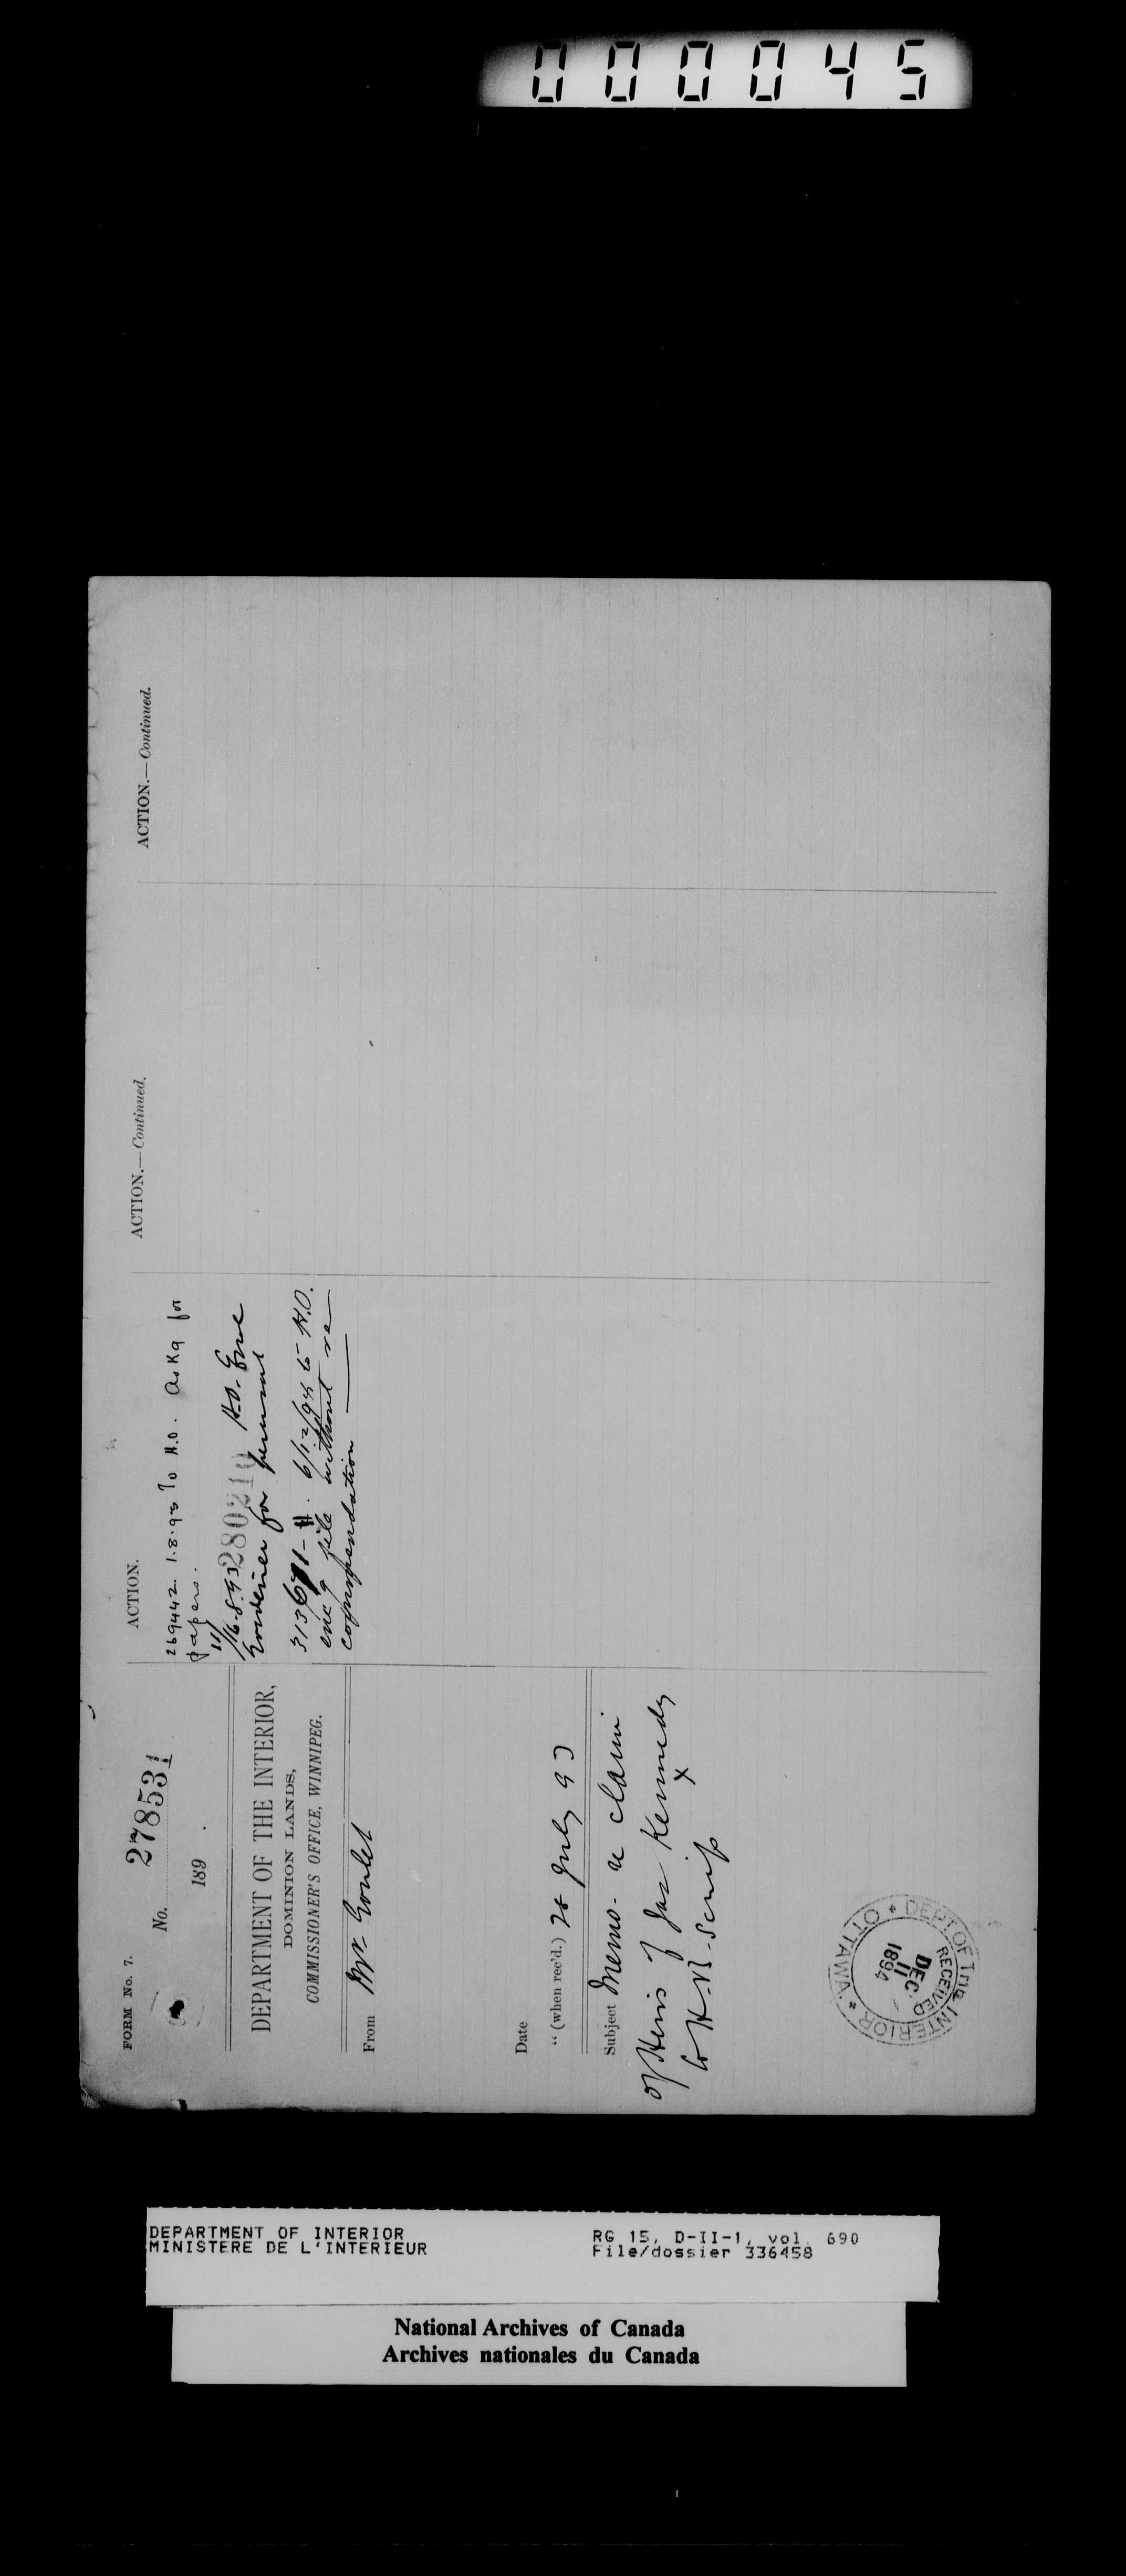 000045
FORM No. 7.
No. 278531
189 .
DEPARTMENT OF THE INTERIOR,
DOMINION LANDS,
COMMISSIONER'S OFFICE, WINNIPEG.
From Mr Goulet
Date
" (when rec'd.) 28 July 93
Subject Memo. re claim
of Heirs of Jas Kennedy
to H-Bd-Scrip
ACTION.
269442. 1.8.93 To H.O. Askg for
papers.
280210 H.O.
for perusal
6/12/94 to H.O.
encg file without re
commendation
ACTION.—Continued.
ACTION.—Continued.
DEPT OF THE INTERIOR * OTTAWA *
RECEIVED
DEC
11
1894
DEPARTMENT OF INTERIOR
MINISTERE DE L'INTERIEUR
RG 15, D-II-1, vol. 690
File/dossier 336458
National Archives of Canada
Archives nationales du Canada